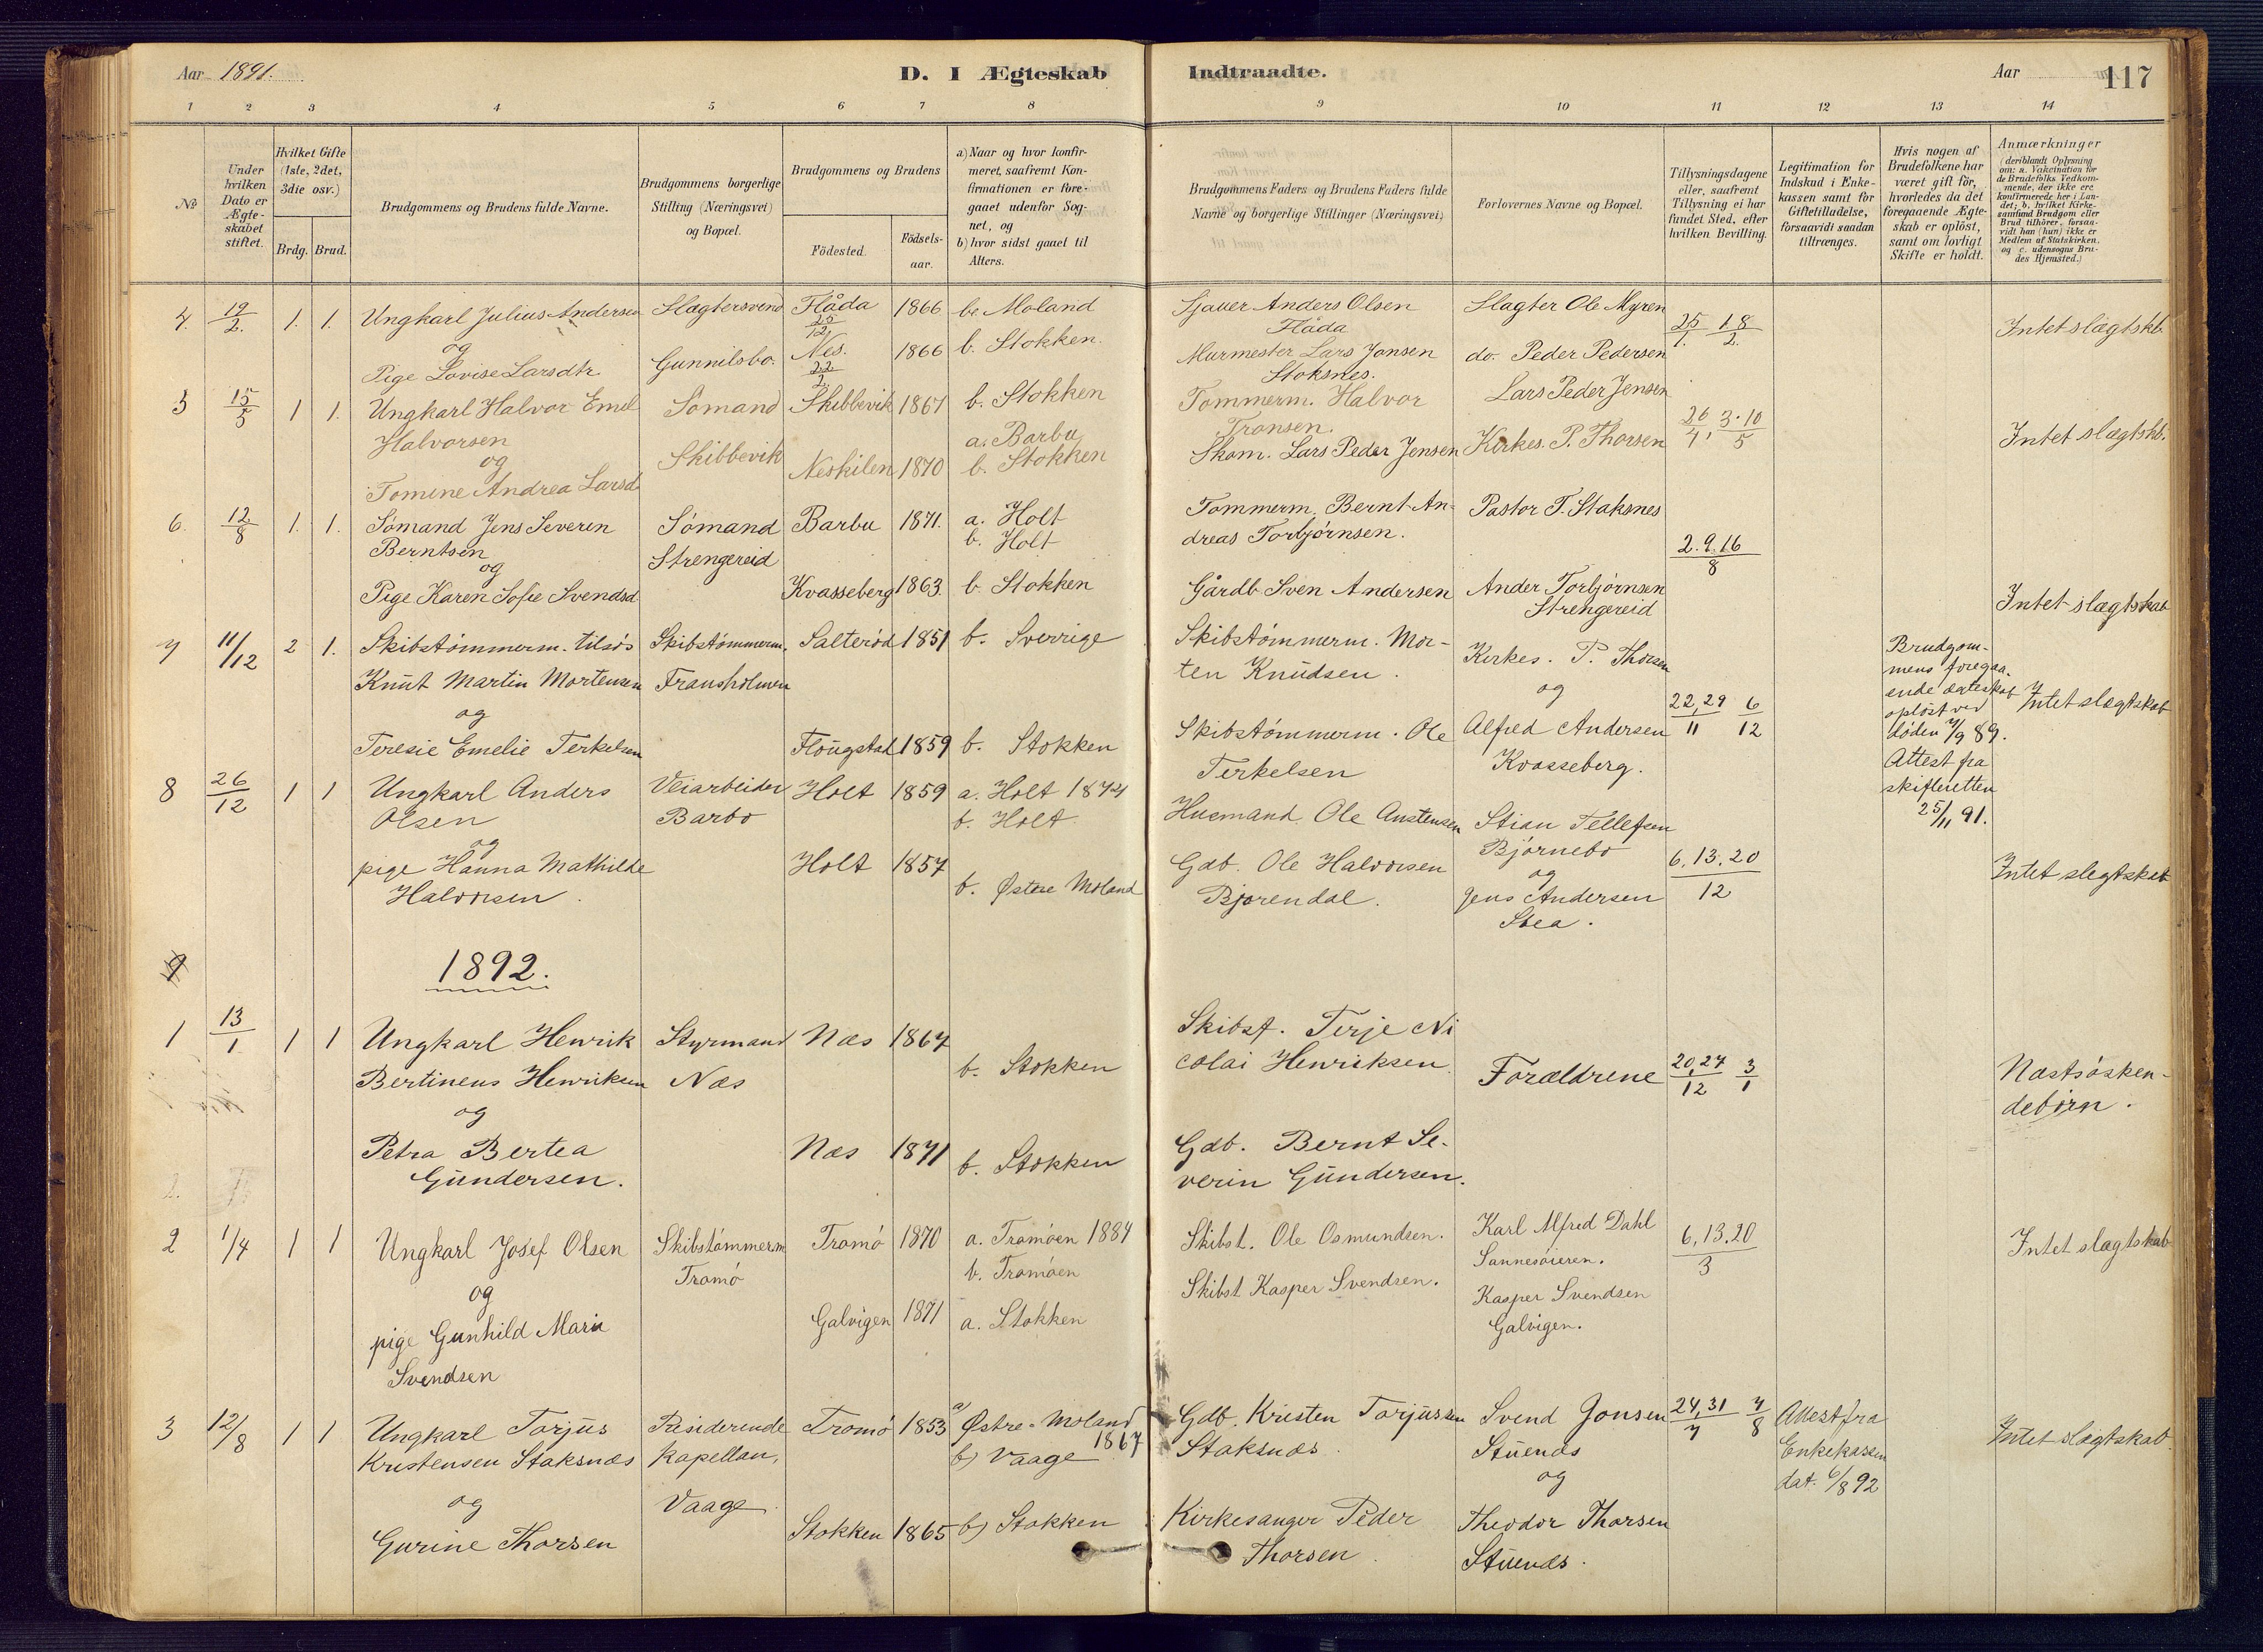 Aar 1891.
D. I Ægteskab
Indtraadte.
Aar 117
1 2 3 4 5 6 7 8 9 10 11 12 13 14
№
Under
hvilken
Dato er
Ægte-
skabet
stiftet.
Hvilket Gifte
(1ste, 2det,
3die osv.)
Brdg. Brud.
Brudgommens og Brudens fulde Navne.
Brudgommens borgerlige
Stilling (Næringsvei)
og Bopæl.
Brudgommens og Brudens
Fødested.
Fødsels-
aar.
a) Naar og hvor konfir-
meret, saafremt Kon-
firmationen er fore-
gaaet udenfor Sog-
net, og
b) hvor sidst gaaet til
Alters.
Brudgommens Faders og Brudens Faders fulde
Navne og borgerlige Stillinger (Næringsvei)
Forlovernes Navne og Bopæl.
Tillysningsdagene
eller, saafremt
Tillysning ei har
fundet Sted, efter
hvilken Bevilling.
Legitimation for
Indskud i Enke-
kassen samt for
Giftetilladelse,
forsaavidt saadan
tiltrænges.
Hvis nogen af
Brudefolkene har
været gift før,
hvorledes da det
foregaaende Ægte-
skab er opløst,
samt om lovligt
Skifte er holdt.
Anmærkninger
(deriblandt Oplysning
om: a. Vakcination for
de Brudefolks Vedkom-
mende, der ikke ere
konfirmerede her i Lan-
det; b. hvilket Kirke-
samfund Brudgom eller
Brud tilhører, forsaa-
vidt han (hun) ikke er
Medlem af Statskirken,
og c. udensogns Bru-
des Hjemsted.)
4. 12/2. 1. 1. Ungkarl Julius Andersen
og
Pige Lovise Larsdtr.
Slagtersvend
Gunnilsbo.
Flåda 25/12 1866 b. Moland
Nes. 22/2 1866 b. Stokken.
Sjauer Anders Olsen
Flåda
Murmester Lars Jonsen
Stoksnes.
Slagter Ole Myren
do. Peder Pedersen
25/1. 1.8/2.
Intet slægtskb.
5 15/5 1 1. Ungkarl Halvor Emil
Halvorsen
og
Tomine Andrea Larsd
Sømand
Skibbevik
Skibbevik 1867 b. Stokken
a. Barbu
Neskilen 1870 b. Stokken
Tømmerm. Halvor
Tronsen.
Skom. Lars Peder Jensen
Lars Peder Jensen
Kirkes. P. Thorsen
26/4, 3.10/5
Intet slægtskb.
6. 12/8 1. 1. Sømand Jens Severin
Berntsen
og
Pige Karen Sofie Svendsd
Sømand
Strengereid
Barbu 1871. a. Holt
b. Holt
Kvasseberg 1863. b. Stokken
Tømmerm. Bernt An-
dreas Torbjørnsen.
Gårdb Sven Andersen
Pastor T. Staksnes
Ander Torbjørnsen
Strengereid
2.9.16/8
Intet slægtskab
7 11/12 2 1. Skibstømmerm. tilsøs
Knut Martin Mortensen
og
Teresie Emelie Terkelsen
Skibstømmerm.
Fransholmen
Salterød 1851 b. Sverrige
Flougstad 1859 b. Stokken
Skibstømmerm. Mor-
ten Knudsen.
Skibstømmerm. Ole
Terkelsen
Kirkes. P. Thorsen
og
Alfred Andersen
Kvasseberg.
22, 29/11 6/12
Brudgom-
mens foregaa-
ende ægteskab
opløst ved
døden 7/9 89.
Attest fra
skifteretten
25/11 91.
Intet slægtskab
8 26/12 1 1 Ungkarl Anders
Olsen
og
pige Hanna Mathilde
Halvorsen.
Veiarbeider
Barbo
Holt 1859 a. Holt 1874
b. Holt
Holt 1857
b. Østre Moland
Husmand. Ole Austensen
Gdb. Ole Halvorsen
Bjorendal.
Stian Tellefsen
Bjørnebo
og
Jens Andersen
Stea.
6.13.20/12
Intet slegtskab
9
1892.
1 13/1 1 1 Ungkarl Henrik
Bertineus Henriksen
og
Petra Bertea
Gundersen.
Styrmand
Næs
Næs 1867
b. Stokken
Næs 1871 b. Stokken
Skibsf. Terje Ni
colai Henriksen.
Gdb. Bernt Se-
verin Gundersen.
Forældrene
20, 27/12 3/1
Næstsøsken-
debørn.
2 1/4 1 1 Ungkarl Josef Olsen
og
pige Gunhild Marie
Svendsen
Skibstømmerm
Tromø
Tromø 1870 a. Tromøen 1884
b. Tromøen
Galvigen 1871 a. Stokken
Skibst. Ole Osmundsen.
Skibst Kasper Svendsen.
Karl Alfred Dahl
Sannesøieren.
Kasper Svendsen
Galvigen.
6,13.20/3
Intet slægtskab
3 12/8 1 1 Ungkarl Torjus
Kristensen Staksnæs
og
Gurine Thorsen
Residerende
Kapellan,
Vaage.
Tromø 1853 a) Østre-Moland
1867
b) Vaage
Stokken 1865 b) Stokken
Gdb. Kristen Torjussen
Staksnæs.
Kirkesanger Peder
Thorsen.
Svend Jonsen
Stuenæs
og
Theodor Thorsen
Stuenæs.
24, 31/7 7/8
Attest fra
Enkekassen
dat. 6/8 92
Intet slægtskab.